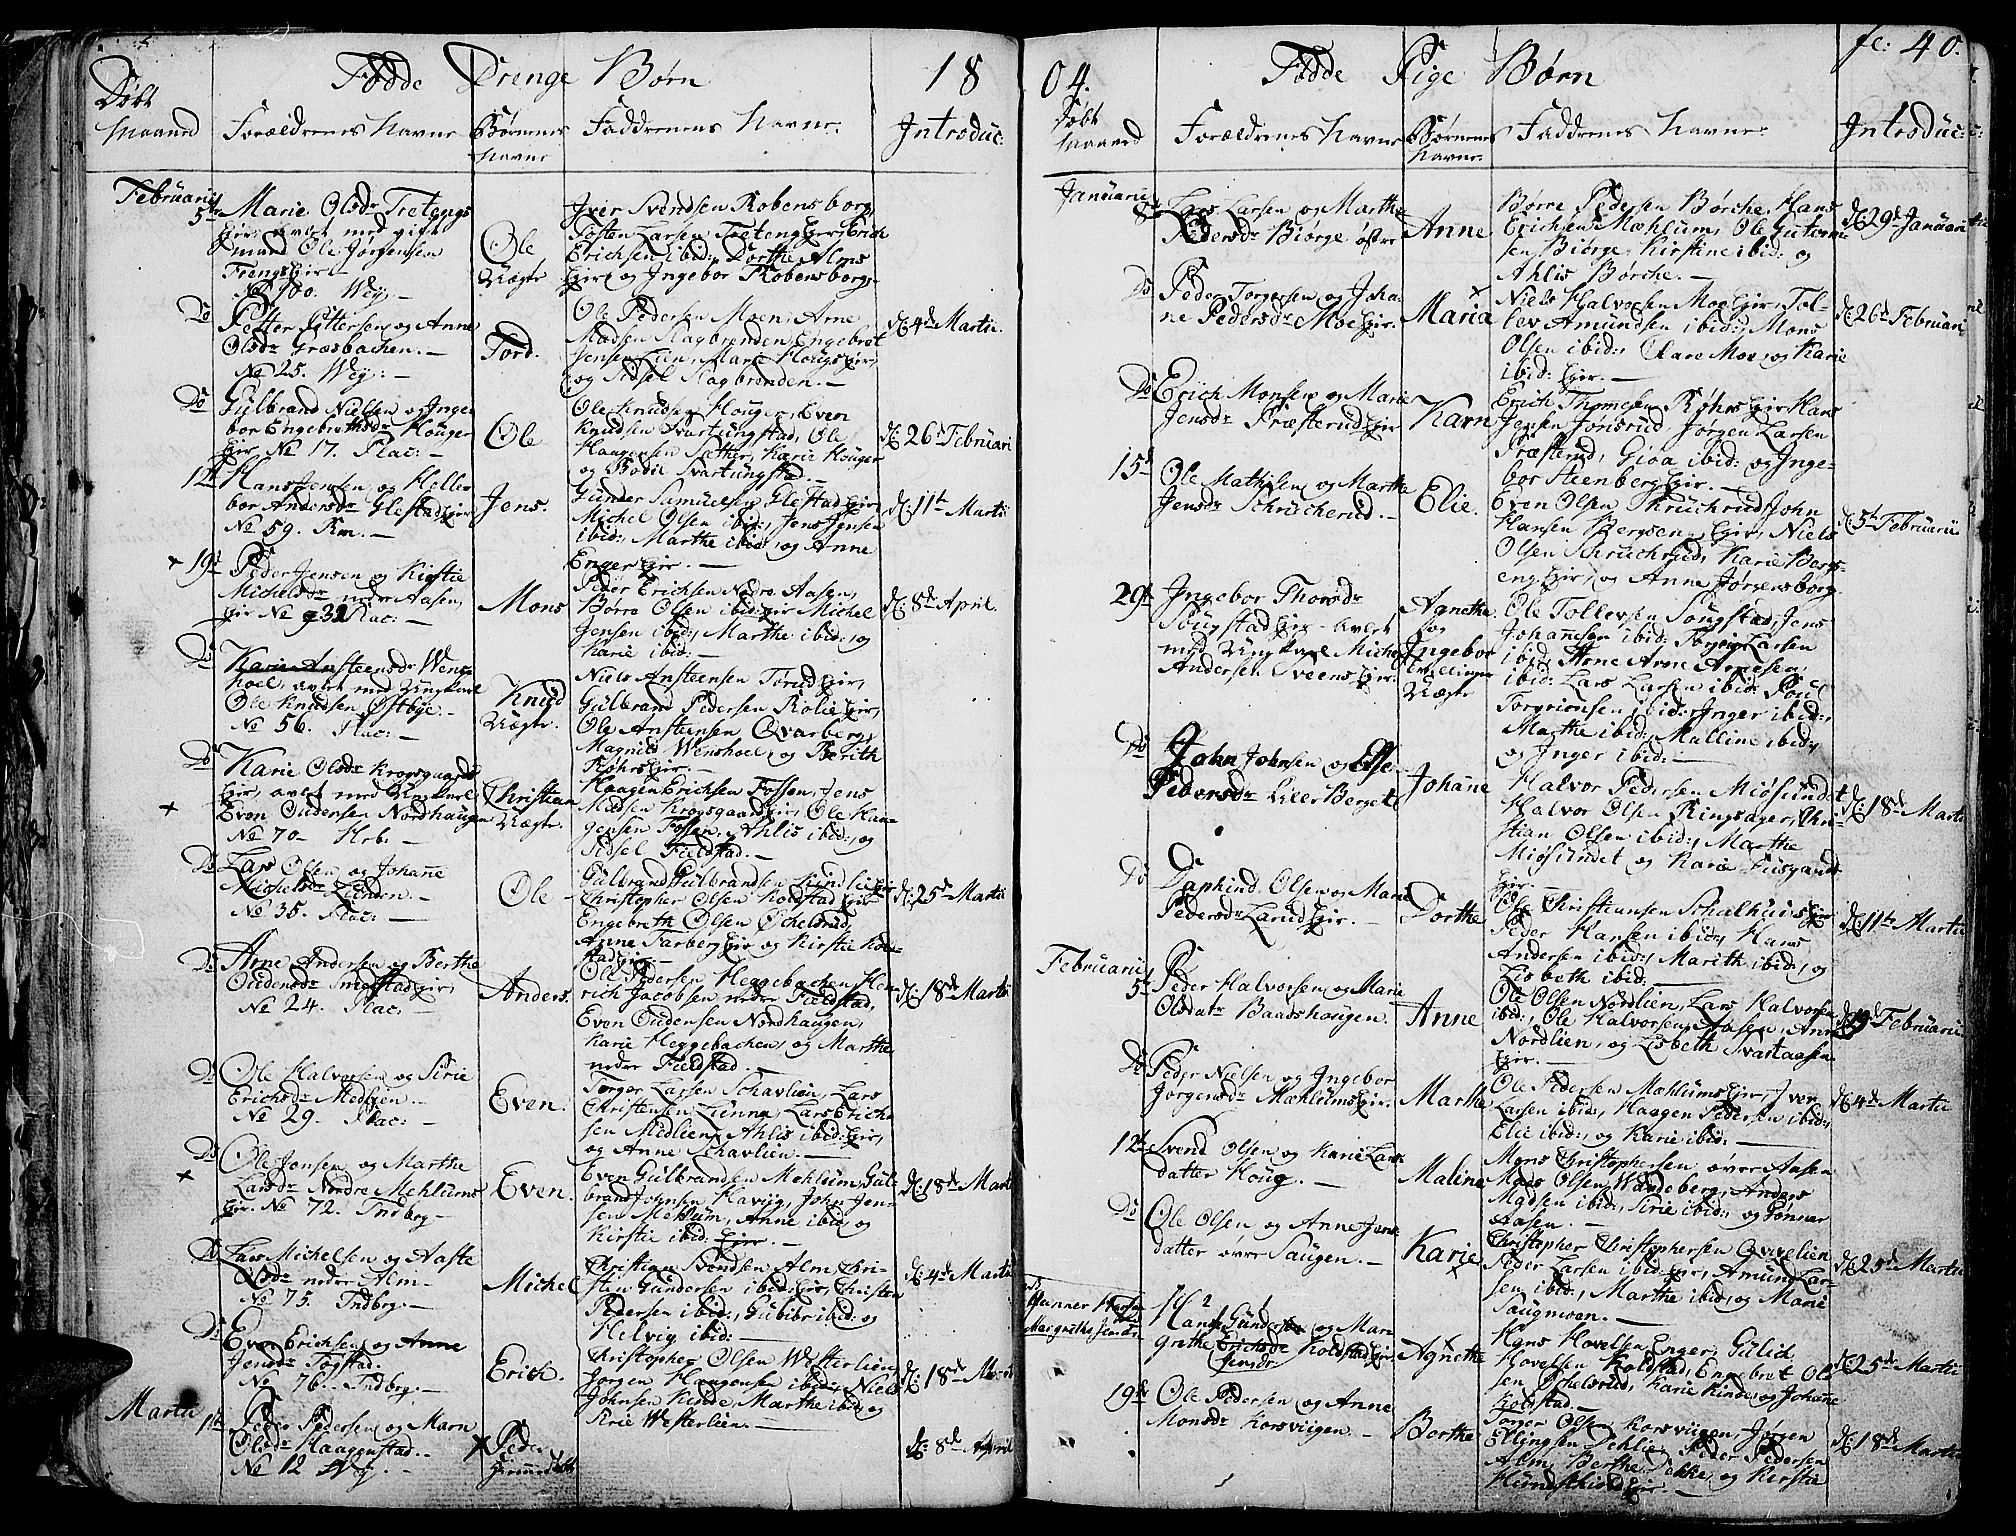 Fødde Drenge Børn 18
Døbt
Maaned
Forældrenes Navne
Børnenes
Navne
Faddrenes Navne
Introduc:
Februarii
5te Marie Olsdr Tretengs
Eir: avlet med gift
mand Ole Jørgensen
Trengs Eir:
No 100. Wej:
Ole
Uægte
Iver Svendsen Robensborg,
Tosten Larsen Tretengs Eir, Erich
Erichsen ibid:, Dorthe Alms
Eir og Ingebor Robensborg
Do Petter Pittersen og Anne
Olsdr Græsbachen.
No 25. Wej:
Tord.
Ole Pedersen Moen, Arne
Madsen Kagbrenden, Engebret
Jensen Lien, Marie Hougs Eir,
og Sidsel Kagbrenden.
d: 4de Martii.
Do Gulbrand Nielsen og Inge
bor Engebrethsdr Houger
Eir No 17. Plac:
Ole
Ole Knudsen Houger, Even
Knudsen Svartungstad, Ole
Haagensen Sæther, Karie Houger
og Bodil Svartungstad.
d: 26de Februarii
12te Hans Jensen og Helle
bor Andersdr Glestad Eir
No 59. Rm.
Jens.
Gunder Samuelsen Glestad Eir,
Michel Olsen ibid:, Jens Jensen
ibid:, Marthe ibid:, og Anne
Enger Eir.
d: 11te Martii
19de Peder Jensen og Kirstie
Michelsdr nedre Aasen,
Eir No 32 Plac:
Mons
Peder Erichsen Nedre Aasen,
Børre Olsen ibid: Eir Michel
Jensen ibid:, Marthe ibid:, og
Karie ibid:
d: 8de April.
Do Karie Ansteensdr Wens
hoel, avlet med Ungkarl
Ole Knudsen Østbye.
No 56. Plac:
Knud
Uægte.
Niels Ansteensen Torud Eir,
Gulbrand Pedersen Rolie Eir,
Ole Ansteensen Qvarberg,
Magnild Wenshoel, og Berith
Røhrs Eir.
Do Karie Olsdr Krogsgaards
Eir, avlet med Ungkarl
Even Oudensen Nordhaugen
No 70. Hrb:
Christian
Uægte.
Haagen Erichsen Fossen, Jens
Madsen Krogsgaard Eir, Ole Haa-
gensen Fossen, Ahlis ibid:, og
Sidsel Fieldstad.
Do Lars Olsen og Johane
Michelsdr Linden.
No 35. Plac:
Ole
Gulbrand Gulbrandsen Kindlie Eir
Christopher Olsen Kolstad Eir
Engebreth Olsen Schelsrud,
Anne Farberg Eir og Kirstie Kol-
stad Eir.
d: 25de Martii
Do Arne Andersen og Berthe
Oudensdr Smestad Eir,
No 24. Plac:
Anders.
Ole Pedersen Heggebachen Hen
rich Jacobsen nedre Fieldstad,
Even Oudensen Nordhaugen,
Karie Heggebachen, og Marthe
nedre Fieldstad.
d: 18de Martii
Do Ole Halvorsen og Sirie
Erichsdr Medlien.
No 29. Plac:
Even.
Torger Larsen Schavlien, Lars
Christensen Linna, Lars Erich-
sen Medlien, Ahlis ibid: Eir,
og Anne Schavlien.
Do Ole Jonsen og Marthe
Larsdr Nordre Mehlums
Eir. No 72. Indbrg.
Even.
Even Gulbrandsen Mehlum, Gul
brand Johnsen Haviig, John Jen-
sen Mehlum, Anne ibid: og
Kirstie ibid: Eir.
d: 18de Martii
Do Lars Michelsen og Aaste
Olsdr nedre Alm.
No 75. Indbrg.
Michel
Christian Svendsen Alm Chri-
sten Gundersen ibid: Eir, Christen
Pedersen ibid:, Gubibr ibid: og
Helvig ibid:
d: 4de Martii
Do Even Erichsen og Anne
Jensdr Togstad.
No 76. Indbrg.
Erich.
Christopher Olsen Westerlien
Jørgen Haagensen ibid:, Niels
Johnsen Kinde, Marthe ibid: og
Sirie Westerlien.
d: 18de Martii
Martii
1te Peder Pedersen og Marn
Olsdr Haagenstad.
No 12 Wej.
Peder
d: 8de April
04. Fødde Pige Børn fc: 40.
Døbt
Maaned
Forældrenes Navne
Børnenes
Navne.
Faddrenes Navne.
Introduc:
Januarii
8de Lars Larsen og Marthe
Pedersdr Biørge østre
Anne
Børre Pedersen Børche, Hans
Erichsen Mæhlum, Ole Gutorm-
sen Biørge, Kirstine ibid: og
Ahlis Børche.
d: 29de Januarii
Do Peder Torgersen og Joha-
ne Pedersdr Moe Eir.
Maria
Niels Halvorsen Moe Eir, Tol-
lev Amundsen ibid:, Mons
Olsen ibid:, Clare Moe, og Karie
ibid: Eir.
d: 26de Februarii
Do Erich Monsen og Marie
Jensdr Præsterud Eir
Karn
Erich Thomesen Røhrs Eir, Hans
Jensen Jonsrud, Jørgen Larsen
Præsterud, Gioa ibid: og Inge-
bor Steenberg Eir.
15de Ole Mathisen og Marthe
Jensdr Schrucherud.
Elie.
Even Olsen Skruchrud, John
Hansen Bergsen Eir, Niels
Olsen Schruchrud, Karie Bergs-
eng Eir, og Anne Jørgensborg
d: 5te Februarii
29de Ingebor Thorsdr
Sougstad Eir avlet
med Ungkarl Michel
Andersen Sveens Eir.
Agnethe
og
Ingebor
tvillinger
Uægte
Ole Tollevsen Sougstad, Jens
Johannesen ibid: Torger Larsen
ibid, Arne Arnesen,
ibid: Lars Larsen ibid: Poul
Torgrimsen, ibid: Inger ibid:
Marthe ibid:, Malline ibid:
og Inger ibid:
Do John Johnsen og Else
Pedersdr Lille Berget
Johane
Halvor Pedersen Miøsundet
Halvor Olsen Ringsager, Chri-
stian Olsen ibid:, Marthe
Miøsundet og Karie Fusgaards
Eir.
d: 18de Martii
Do Daphind Olsen og Marie
Pedersdr Larud Eir.
Dorthe
Ole Christiansen Schulhuus Eir
Peder Hansen ibid:, Hans
Andersen ibid:, Marith ibid:, og
Lisbeth ibid:
d: 11te Martii
Februarii
5te Peder Halvorsen og Marie
Olsdatr Baadshougen.
Anne
Ole Olsen Nordlien, Lars Halvorsen
ibid:, Ole Halvorsen Aasen, Anne
Nordlien, og Lisbeth Svartaasen
Eir.
d: 19de Februarii
Do Peder Nielsen og Ingebor
Jørgensdr Mæhlums Eir.
Marthe
Ole Pedersen Mæhlums Eir, Iven
Larsen ibid:, Haagen Pedersen ibid:,
Elie ibid:, og Karie ibid:
d: 4de Martii
12te Svend Olsen og Karie Lars
datter Houg.
Maline
Mons Christophersen øvre Aasen
Mads Olsen Wandeberg, Anders
Madsen ibid:, Sirie ibid:, og Gønner
Aasen.
Do Ole Olsen og Anne Jens
datter øvre Saugen.
Karie
Christopher Christophersen Qvivelien
Peder Larsen ibid: Eir, Amund Lar-
sen ibid:, Marthe ibid:, og Marie
Saugmoen.
d: 25de Martii
Gunner Hansen
Margrethe Jensdr
Hans Gundersen og Mar-
grethe Erichsdr Kolstad Eir
Jensdr.
Agnethe
Hans Hovelsen Enger, Gulich
Hovelsen Kolstad, Engebret Ol-
sen Schelsrud, Karie Kinde, og Johane
Kolstad.
d: 25de Martii
19de Ole Pedersen og Anne
Monsdr Korsviigen.
Berthe
Torger Olsen Korsviigen, Jørgen
Ellingsen Dehlie, Peder Pedersen
Alm, Berthe Dikke, og Kerstie
Hundschind Eir.
d: 18de Martii